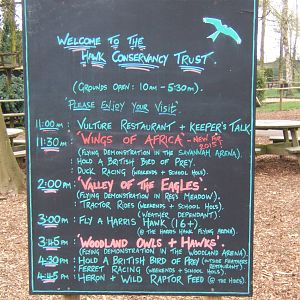 WELCOME TO THE
HAWK CONSERVANCY TRUST.
(GROUNDS OPEN: 10AM - 5:30PM).
'PLEASE ENJOY YOUR VISIT'
11:00AM : VULTURE RESTAURANT + KEEPER'S TALK.
11:30AM : 'WINGS OF AFRICA' - NEW FOR 2015!
(FLYING DEMONSTRATION IN THE SAVANNAH ARENA).
: HOLD A BRITISH BIRD OF PREY.
: DUCK RACING (WEEKENDS + SCHOOL HOLS).
2:00PM : 'VALLEY OF THE EAGLES'.
(FLYING DEMONSTRATION IN REG'S MEADOW).
: TRACTOR RIDES (WEEKENDS + SCHOOL HOLS).
(WEATHER DEPENDANT).
3:00PM : FLY A HARRIS HAWK (16+)
(@ THE HARRIS HAWK FLYING ARENA)
3:45PM : 'WOODLAND OWLS + HAWKS'.
(FLYING DEMONSTRATION IN THE WOODLAND ARENA)
4:30PM : HOLD A BRITISH BIRD OF PREY (OUTSIDE FEATHERS RESTAURANT)
: FERRET RACING (WEEKENDS + SCHOOL HOLS)
4:45PM : HERON + WILD RAPTOR FEED (@ THE HIDES)